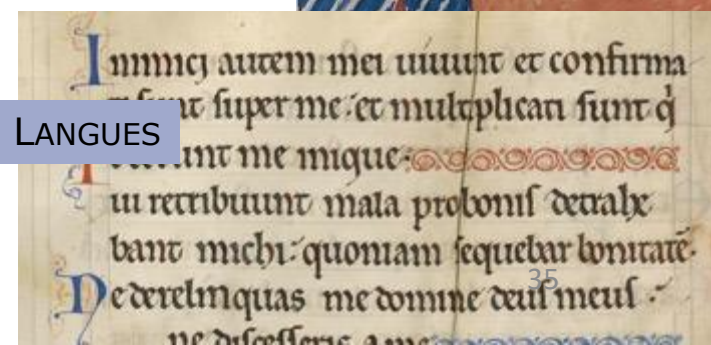 Inimici autem mei uiuunt et confirma
sunt super me: et multiplicati sunt q̇
LANGUES
me inique:
ui retribuunt mala probonis detrahe
bant michi: quoniam sequebar bonitatē.
35
Ne derelinquas me domine deus meus.
ne discesseris a me